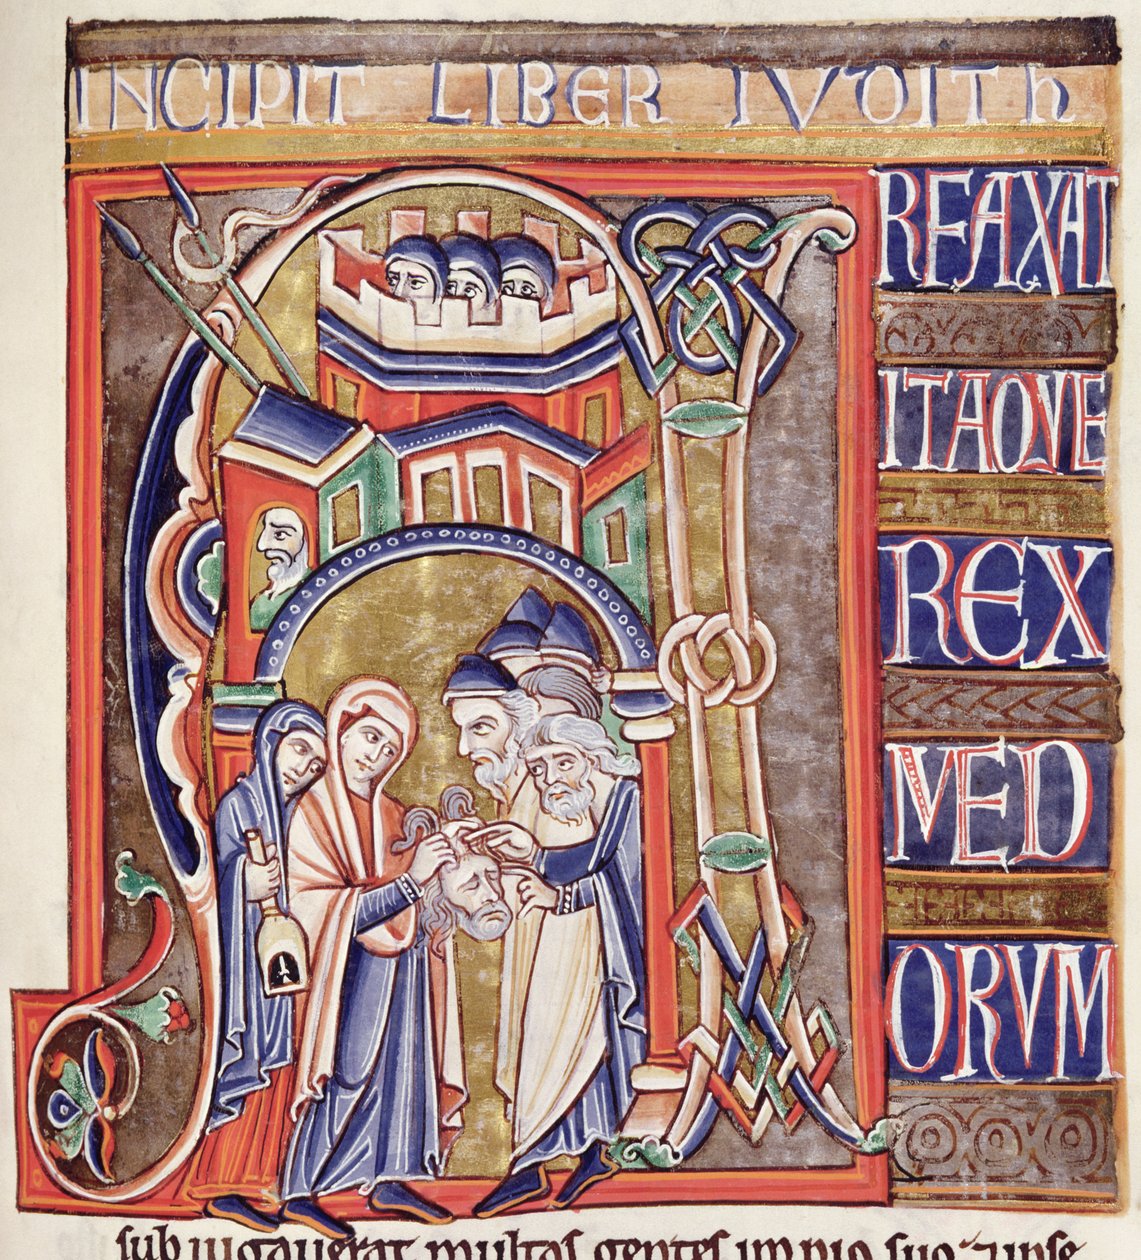 INCIPIT LIBER IVDITh
ARFAXAT
ITAQVE
REX
MED
ORVM
subiugauerat multas gentes impio suo. 7 ipse